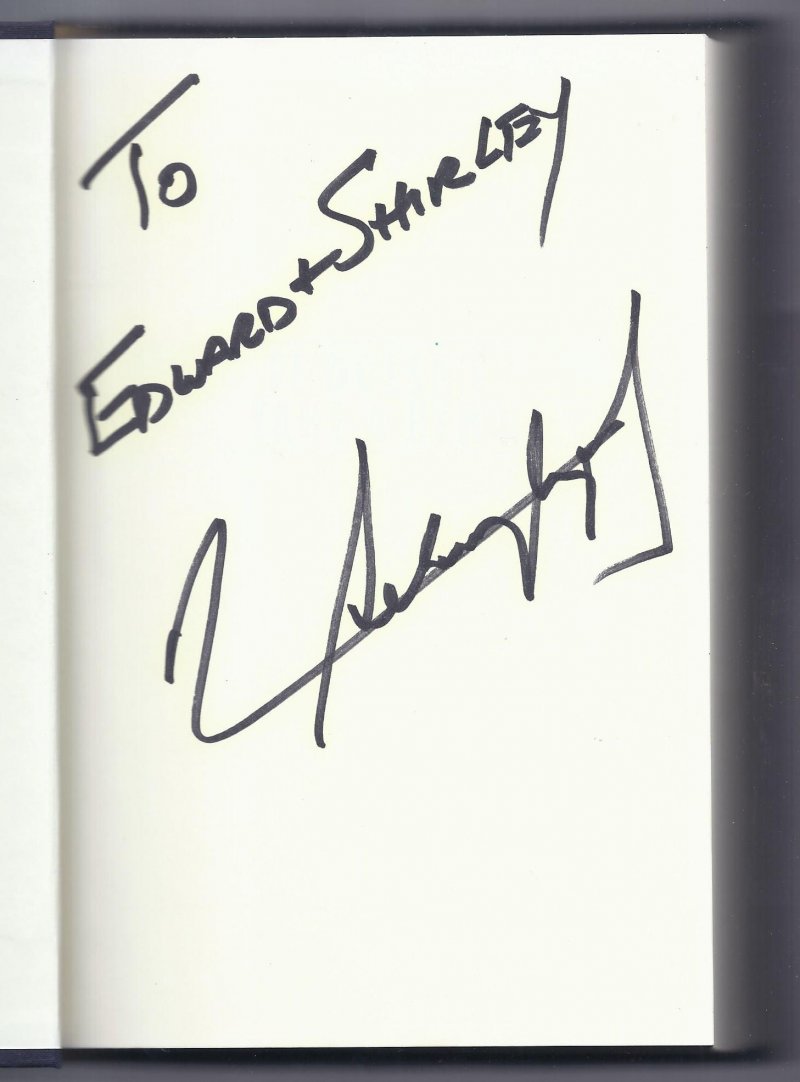 To
EDWARD + SHIRLEY